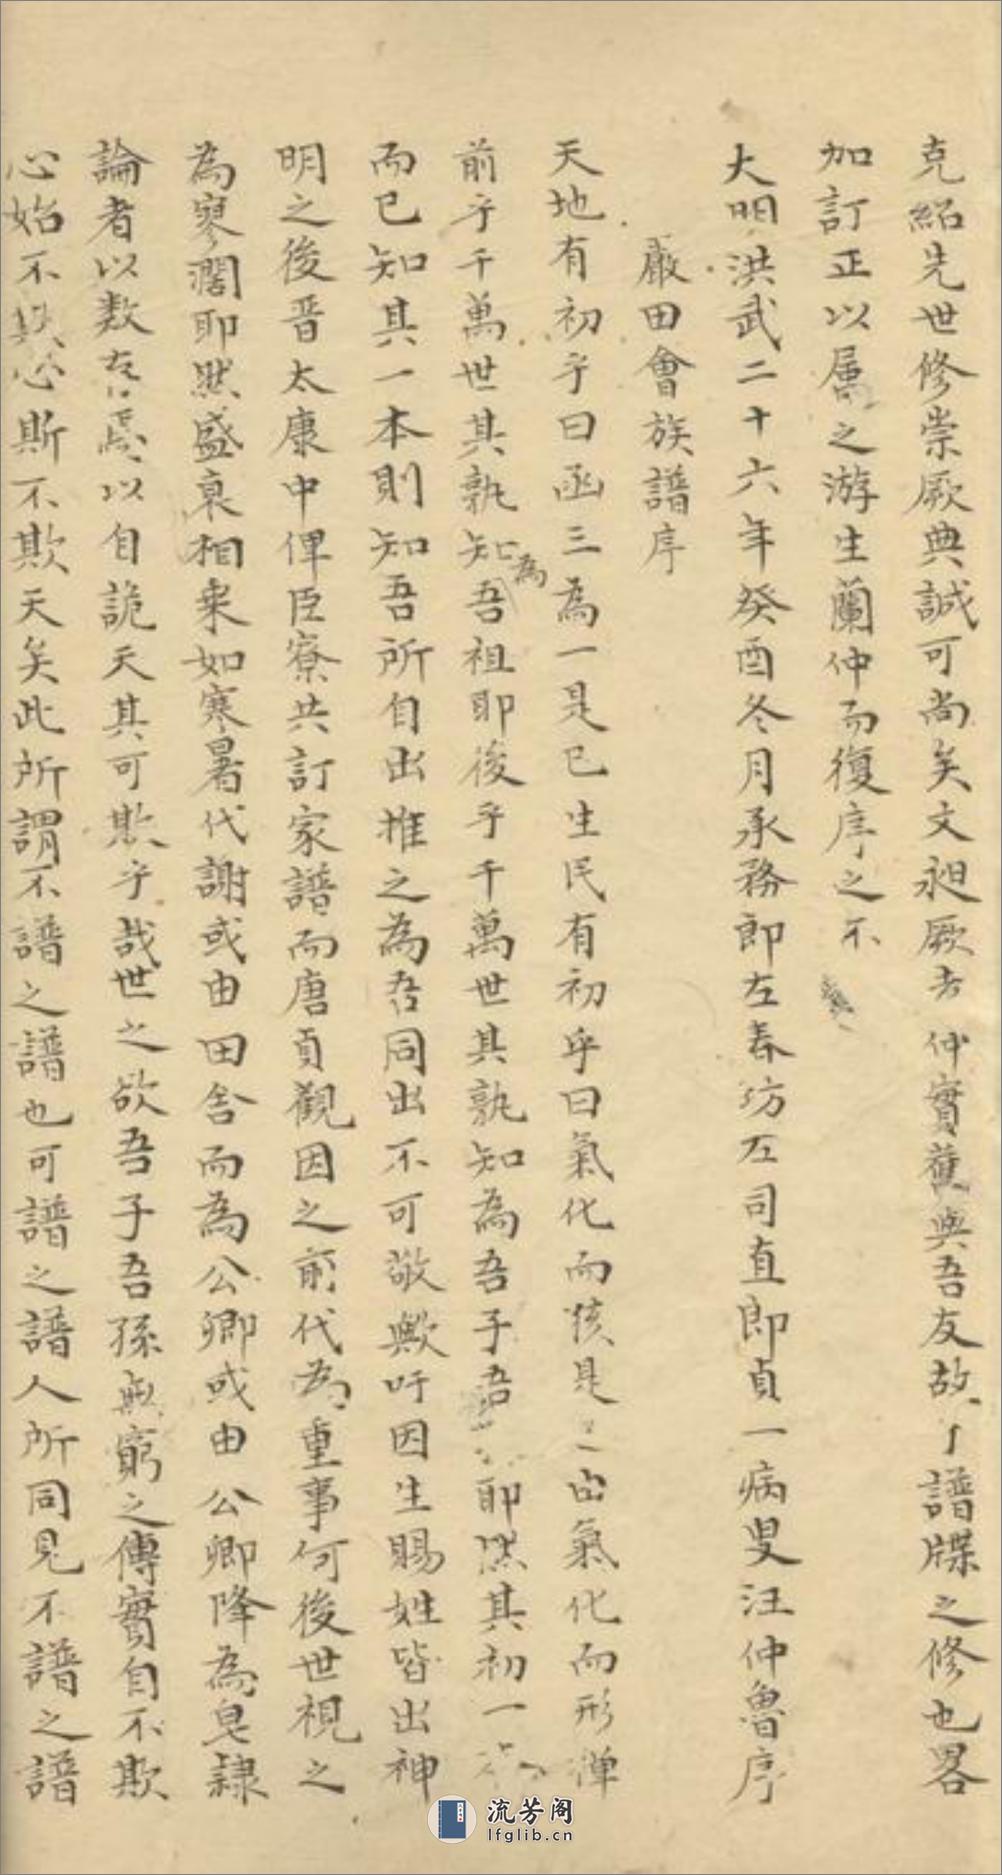 克紹先世修崇厥典誠可尚矣文昶厥考仲實舊與吾友故譜牒之修也畧
加訂正以屬之游生蘭仲而復序之不
大明洪武二十六年癸酉冬月承務郎左春坊左司直郎貞一病叟汪仲魯序
嚴田會族譜序
天地有初乎曰函三為一是已生民有初乎曰氣化而孩是已由氣化而形禪
前乎千萬世其孰知為吾祖耶後乎千萬世其孰知為吾子吾耶然其初一
而已知其一本則知吾所自出推之為吾同出不可敬歟吁因生賜姓皆出神
明之後晉太康中俾臣寮共訂家譜而唐貞觀因之前代為重事何後世視之
為寥濶耶然盛衰相乘如寒暑代謝或由田舍而為公卿或由公卿降為皂隸
論者以數言焉以自詭天其可欺乎哉世之欲吾子吾孫無窮之傳實自不欺
心始不欺心斯不欺天矣此所謂不譜之譜也可譜之譜人所同見不譜之譜
流芳阁
lfglib.cn